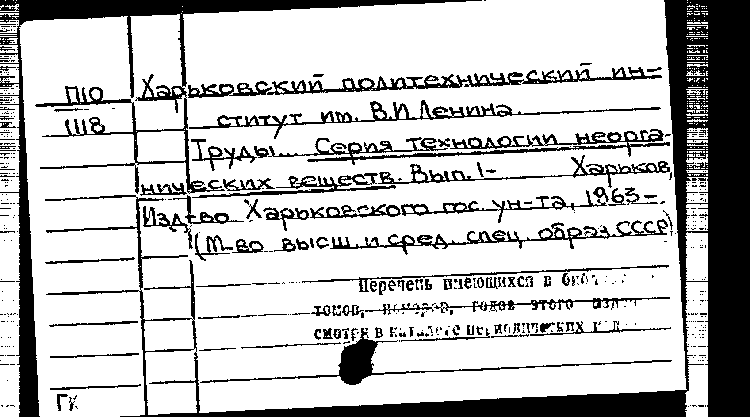 П10 Харьковский политехнический ин-
1118 ститут им. В.И.Ленина.
Труды... Серия технологии неорга-
нических веществ. Вып. 1- Харьков,
Изд-во Харьковского гос. ун-та, 1963-.
(М-во высш. и сред. спец. образ. СССР)
Перечень имеющихся в
томов, номеров, годов этого
смотри в каталоге периодических
ГК